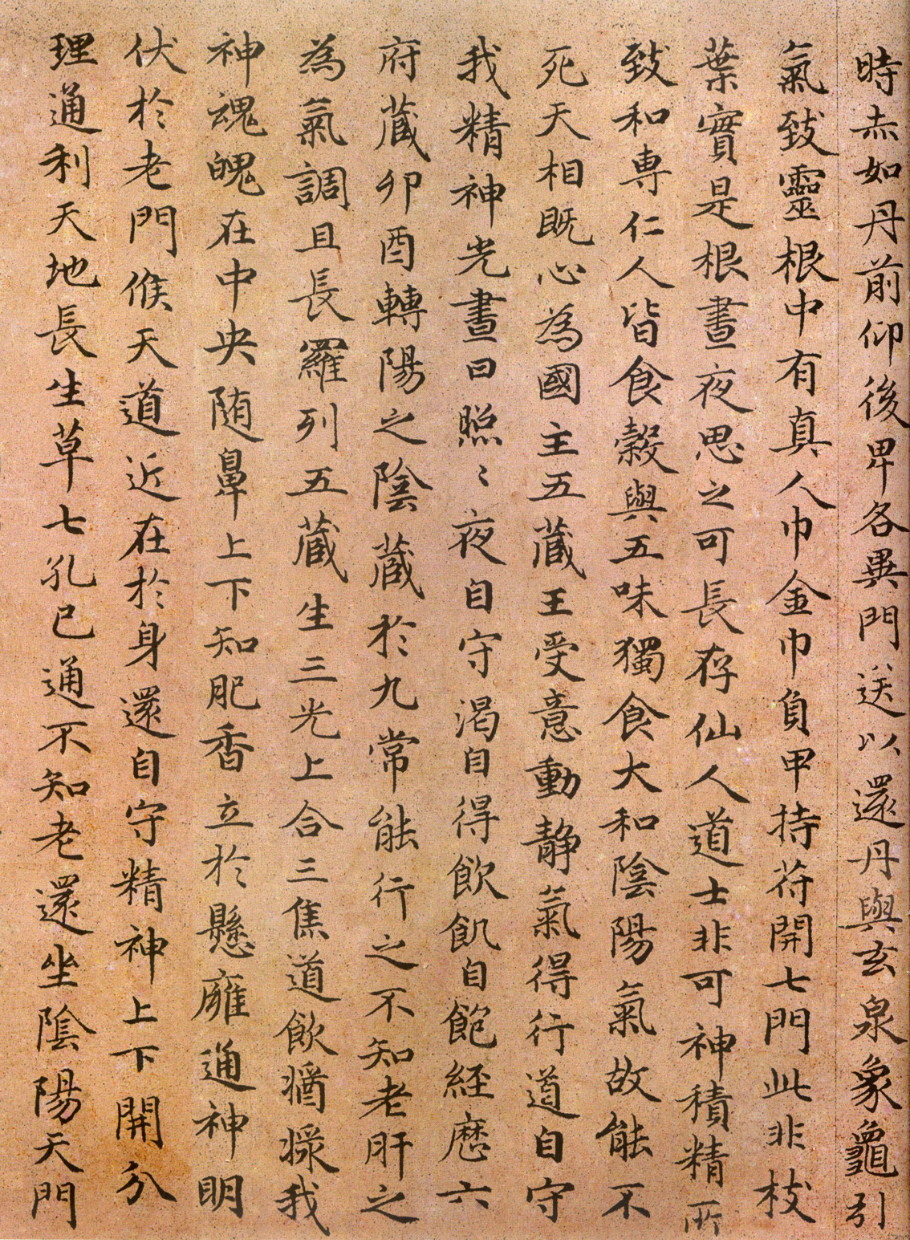 時赤如丹前仰後卑各異門送以還丹與玄泉象龜引
氣致靈根中有真人巾金巾負甲持苻開七門此非枝
葉實是根晝夜思之可長存仙人道士非可神積精所
致和専仁人皆食糓與五味獨食大和陰陽氣故能不
死天相既心為國主五蔵王受意動静氣得行道自守
我精神光晝日照〻夜自守渴自得飲飢自飽経歷六
府蔵卯酉轉陽之陰蔵於九常能行之不知老肝之
為氣調且長羅列五蔵生三光上合三焦道飲漿我
神魂魄在中央随鼻上下知肥香立於懸癰通神明
伏於老門候天道近在於身還自守精神上下開分
理通利天地長生草七孔已通不知老還坐陰陽天門